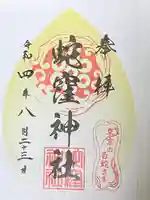 奉拝
蛇窪神社
令和四年八月二十三日
白蛇さま